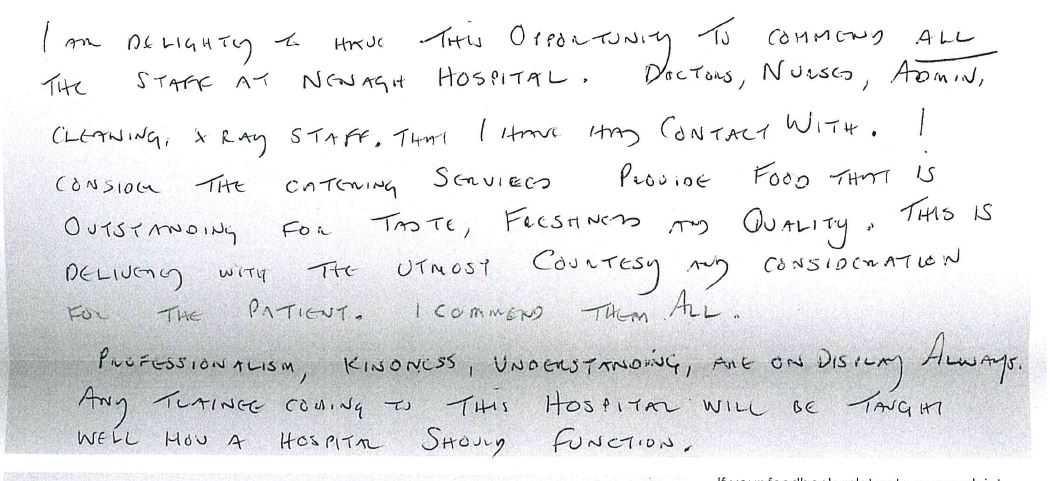 I am DELIGHTED to HAVE THIS OPPORTUNITY TO COMMEND ALL
THE STAFF AT NENAGH HOSPITAL. DOCTORS, NURSES, ADMIN,
CLEANING, X RAY STAFF, THAT I HAVE HAD CONTACT WITH. I
CONSIDER THE CATERING SERVICES PROVIDE FOOD THAT IS
OUTSTANDING FOR TASTE, FRESHNESS AND QUALITY. THIS IS
DELIVERED WITH THE UTMOST COURTESY AND CONSIDERATION
FOR THE PATIENT. I COMMEND THEM ALL.
PROFESSIONALISM, KINDNESS, UNDERSTANDING, ARE ON DISPLAY ALWAYS.
ANY TRAINEE COMING TO THIS HOSPITAL WILL BE TAUGHT
WELL HOW A HOSPITAL SHOULD FUNCTION.